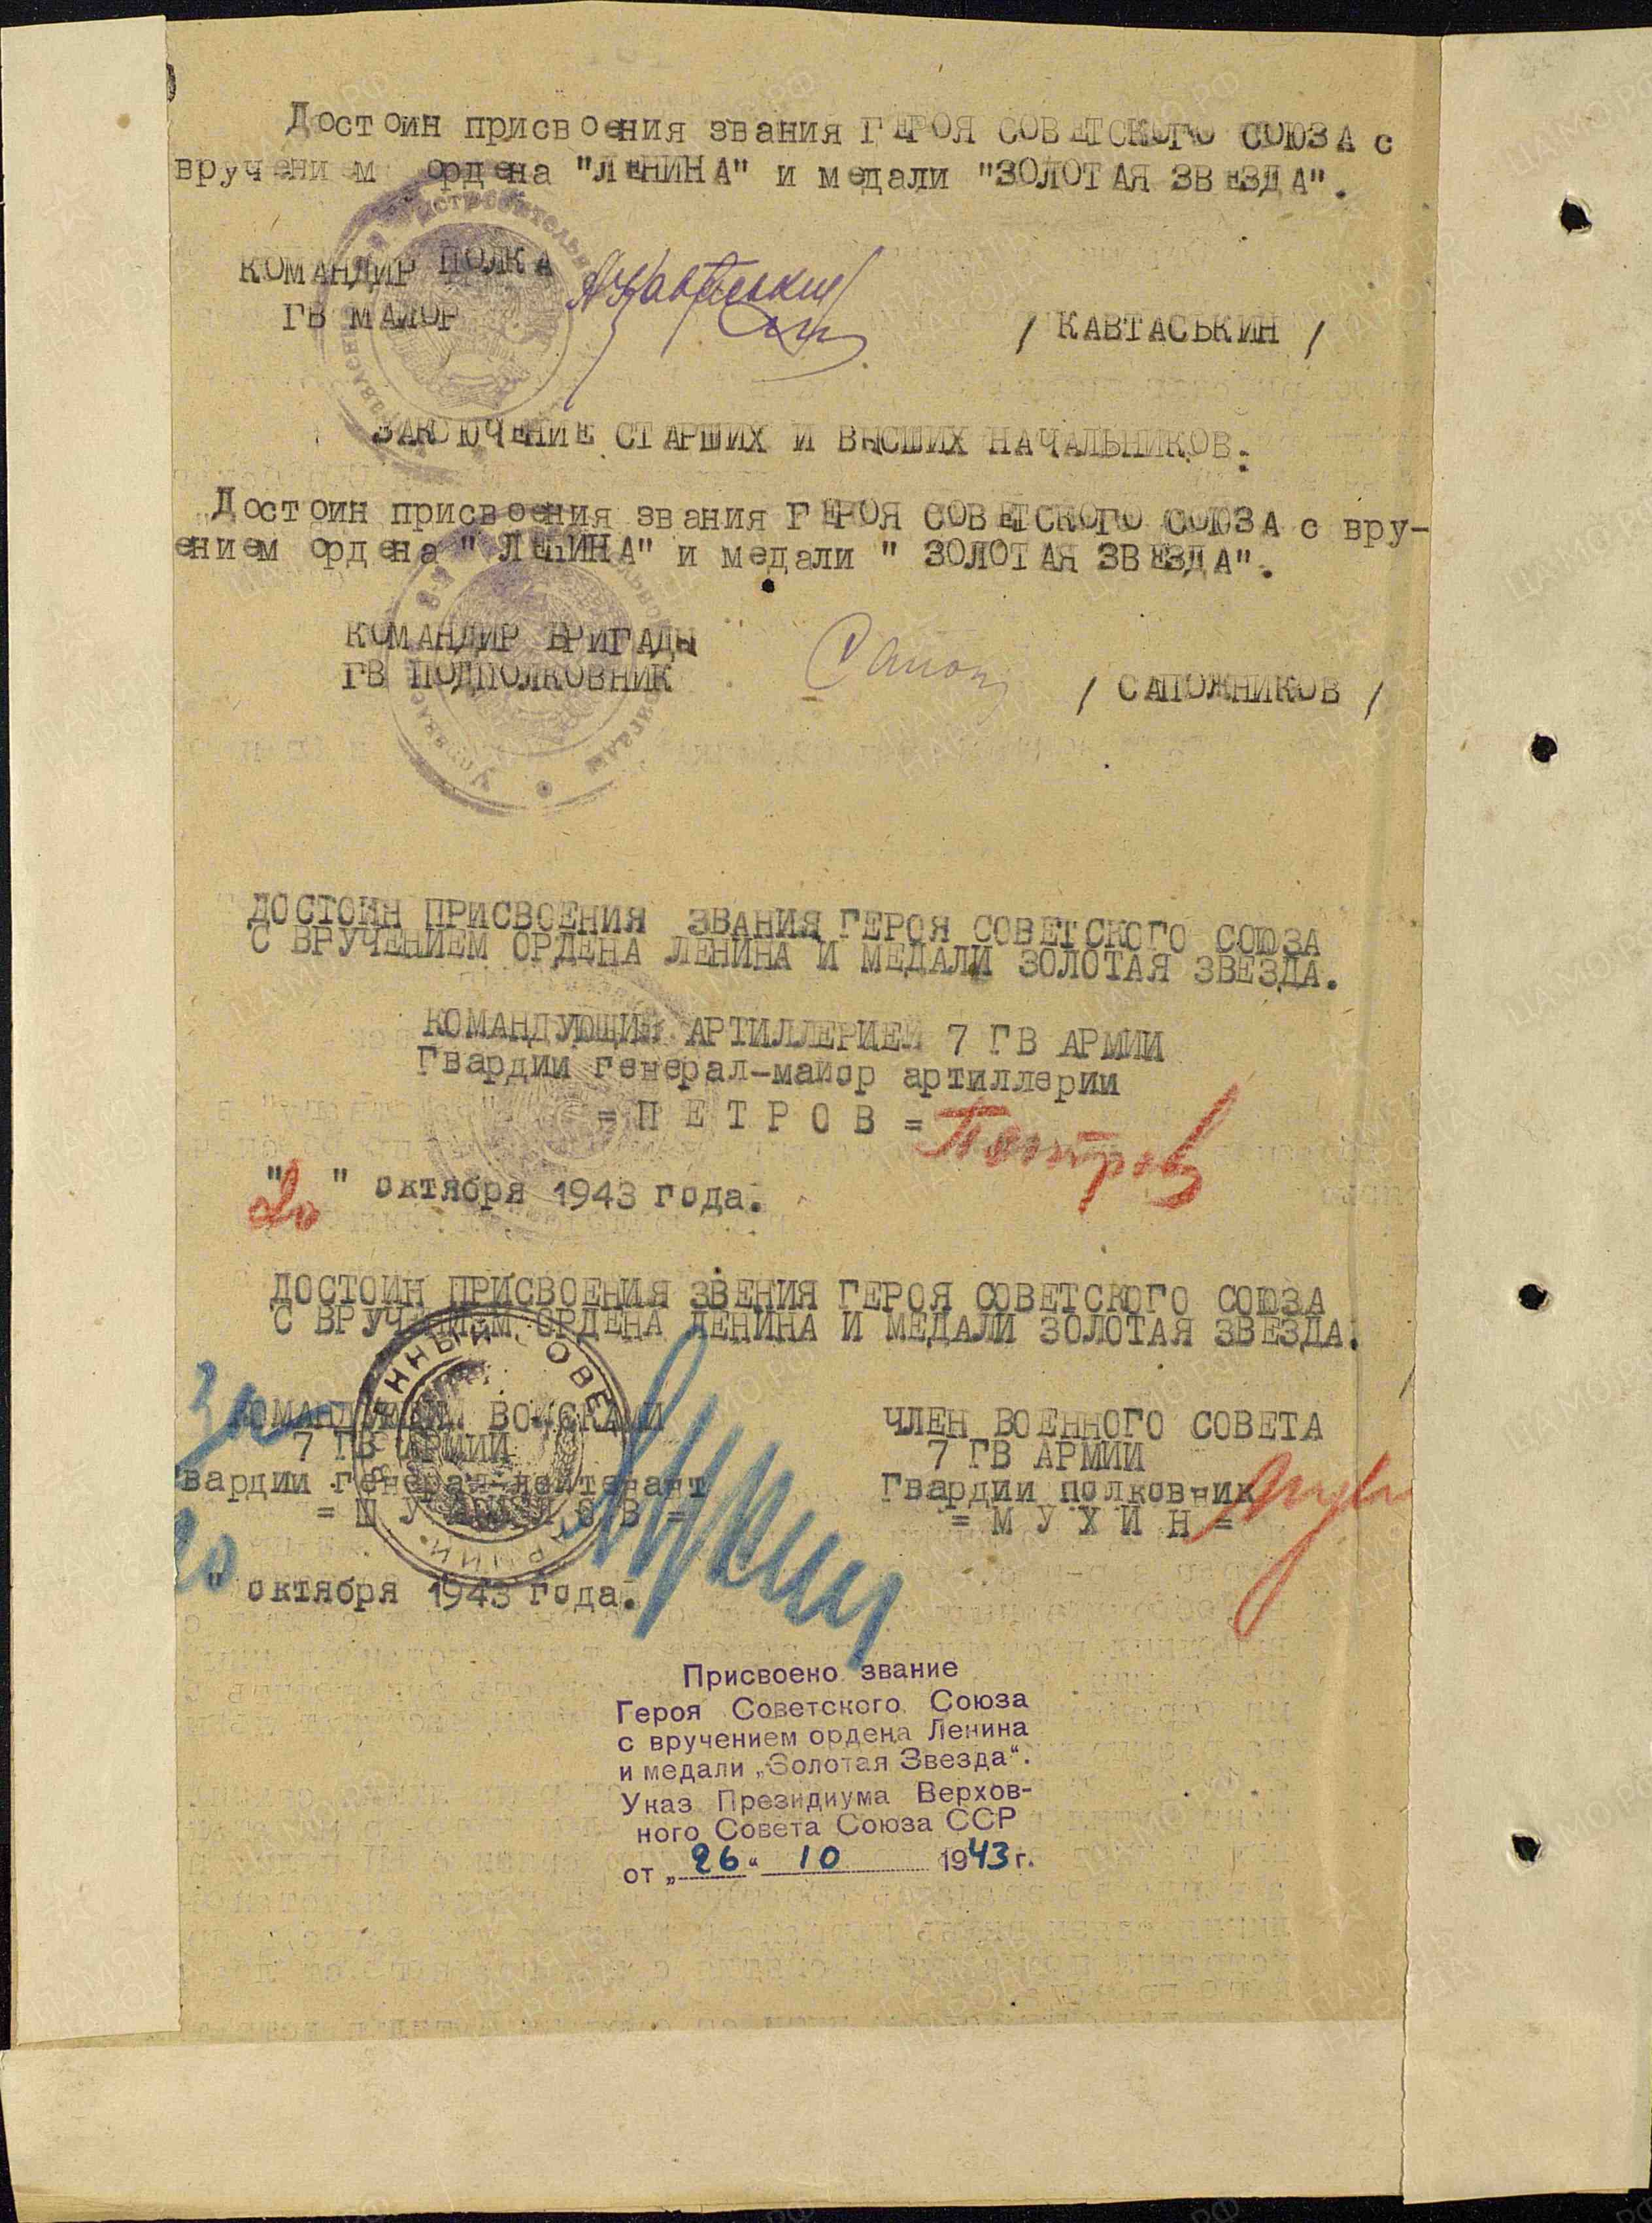 Достоин присвоения звания ГЕРОЯ СОВЕТСКОГО СОЮЗА с
вручением ордена "ЛЕНИНА" и медали "ЗОЛОТАЯ ЗВЕЗДА".
КОМАНДИР ПОЛКА
ГВ МАЙОР
/ КАВТАСЬКИН /
ЗАКЛЮЧЕНИЕ СТАРШИХ И ВЫСШИХ НАЧАЛЬНИКОВ:
Достоин присвоения звания ГЕРОЯ СОВЕТСКОГО СОЮЗА с вру-
ением ордена " ЛЕНИНА" и медали " ЗОЛОТАЯ ЗВЕЗДА".
КОМАНДИР БРИГАДЫ
ГВ ПОДПОЛКОВНИК
/ САПОЖНИКОВ /
ДОСТОИН ПРИСВОЕНИЯ ЗВАНИЯ ГЕРОЯ СОВЕТСКОГО СОЮЗА
С ВРУЧЕНИЕМ ОРДЕНА ЛЕНИНА И МЕДАЛИ ЗОЛОТАЯ ЗВЕЗДА.
КОМАНДУЮЩИЙ АРТИЛЛЕРИЕЙ 7 ГВ АРМИИ
Гвардии генерал-майор артиллерии
= П Е Т Р О В = Петров
"20" октября 1943 года.
ДОСТОИН ПРИСВОЕНИЯ ЗВЕНИЯ ГЕРОЯ СОВЕТСКОГО СОЮЗА
С ВРУЧЕНИЕМ ОРДЕНА ЛЕНИНА И МЕДАЛИ ЗОЛОТАЯ ЗВЕЗДА.
За КОМАНДУЮЩИЙ ВОЙСКАМИ
7 ГВ АРМИИ
вардии генерал-лейтенант
= Ш У М И Л О В =
20 " октября 1943 года.
ЧЛЕН ВОЕННОГО СОВЕТА
7 ГВ АРМИИ
Гвардии полковник
= М У Х И Н =
Присвоено звание
Героя Советского Союза
с вручением ордена Ленина
и медали „Золотая Звезда“.
Указ Президиума Верхов-
ного Совета Союза ССР
от „26“ 10 1943 г.